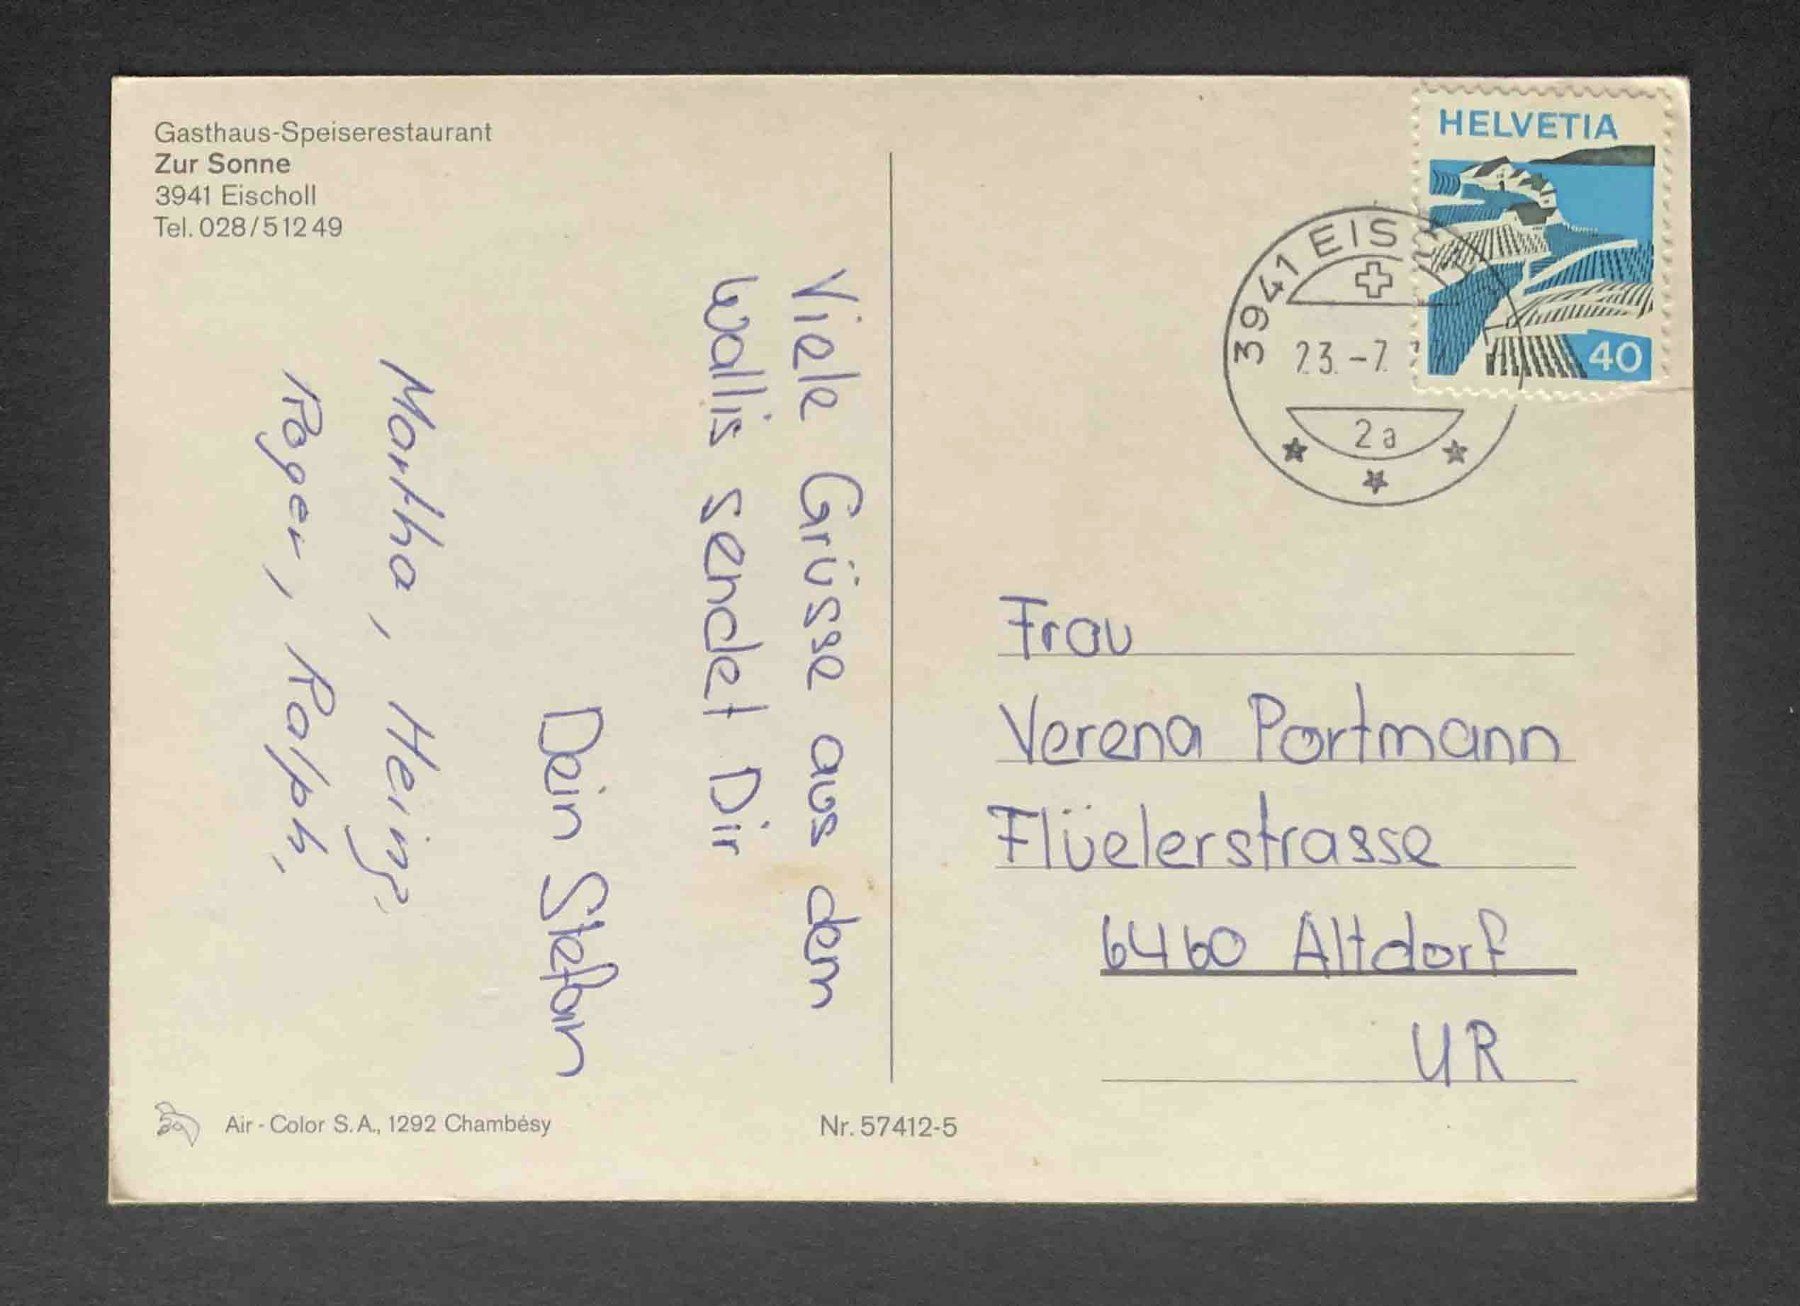 Gasthaus-Speiserestaurant
Zur Sonne
3941 Eischoll
Tel. 028/51249
Viele Grüsse aus dem
Wallis sendet Dir
Dein Stefan
Martha, Heinz,
Roger, Ralph,
Air-Color S.A., 1292 Chambésy
Nr. 57412-5
HELVETIA
40
3941 EISC
23.-7.
2a
Frau
Verena Portmann
Flüelerstrasse
6460 Altdorf
UR